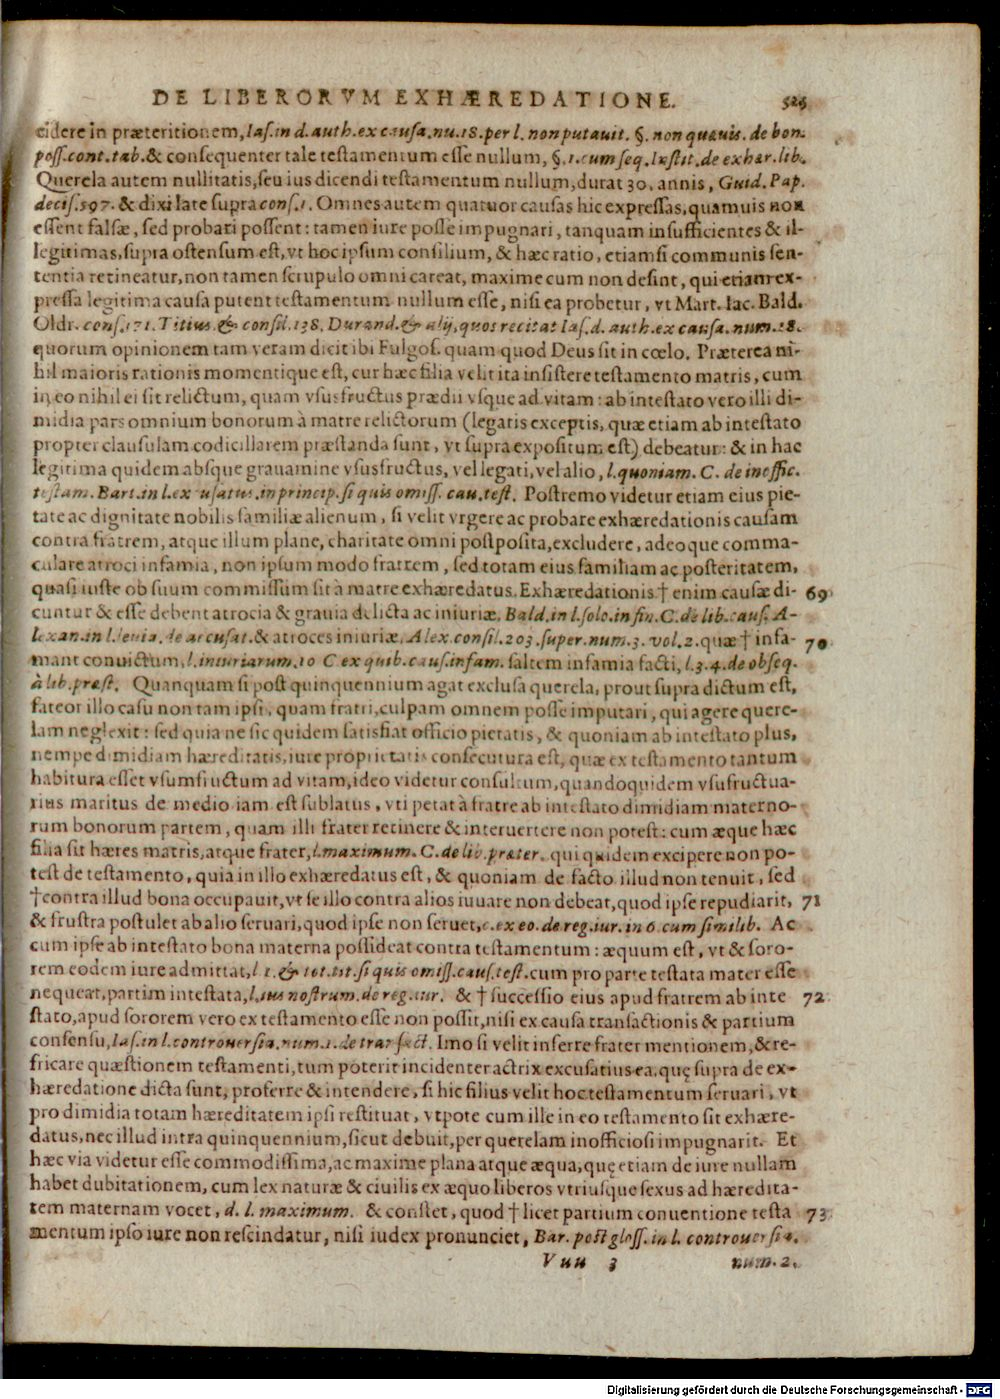 DE LIBERORVM EXHÆREDATIONE. 525
cidere in præteritionem, Ias. in d. auth. ex causa. nu. 18. per l. non putauit. §. non quæuis. de bon.
poss. cont. tab. & consequenter tale testamentum esse nullum, §. 1. cum seq. Instit. de exhær. lib.
Querela autem nullitatis, seu ius dicendi testamentum nullum, durat 30. annis, Guid. Pap.
decis. 597. & dixi late supra cons. 1. Omnes autem quatuor causas hic expressas, quamuis non
essent falsæ, sed probari possent: tamen iure posse impugnari, tanquam insufficientes & il-
legitimas, supra ostensum est, vt hoc ipsum consilium, & hæc ratio, etiamsi communis sen-
tentia retineatur, non tamen scrupulo omni careat, maxime cum non desint, qui etiam ex-
pressa legitima causa putent testamentum nullum esse, nisi ea probetur, vt Mart. Iac. Bald.
Oldr. cons. 171. Titius. & consil. 138. Durand. & alij, quos recitat Ias. d. auth. ex causa. num. 18.
quorum opinionem tam veram dicit ibi Fulgos. quam quod Deus sit in cœlo. Præterea ni-
hil maioris rationis momentique est, cur hæc filia velit ita insistere testamento matris, cum
in eo nihil ei sit relictum, quam vsusfructus prædii vsque ad vitam: ab intestato vero illi di-
midia pars omnium bonorum à matre relictorum (legatis exceptis, quæ etiam ab intestato
propter clausulam codicillarem præstanda sunt, vt supra expositum est) debeatur: & in hac
legitima quidem absque grauamine vsusfructus, vel legati, vel alio, l. quoniam. C. de inoffic.
testam. Bart. in l. ex usatus. in princip. si quis omiss. cau. test. Postremo videtur etiam eius pie-
tate ac dignitate nobilis familiæ alienum, si velit vrgere ac probare exhæredationis causam
contra fratrem, atque illum plane, charitate omni postposita, excludere, adeoque comma-
culare atroci infamia, non ipsum modo fratrem, sed totam eius familiam ac posteritatem,
quasi iuste ob suum commissum sit à matre exhæredatus. Exhæredationis † enim causæ di- 69
cuntur & esse debent atrocia & grauia delicta ac iniuriæ. Bald. in l. solo. in fin. C. de lib. caus. A-
lexan. in l. leuia. de accusat. & atroces iniuriæ, Alex. consil. 203. super. num. 3. vol. 2. quæ † infa- 70
mant conuictum, l. iniuriarum. 10 C ex quib. caus. infam. saltem infamia facti, l. 3. 4. de obseq.
à lib. præst. Quanquam si post quinquennium agat exclusa querela, prout supra dictum est,
fateor illo casu non tam ipsi, quam fratri, culpam omnem posse imputari, qui agere quere-
lam neglexit: sed quia ne sic quidem satisfiat officio pietatis, & quoniam ab intestato plus,
nempe dimidiam hæreditatis, iure proprietatis consecutura est, quæ ex testamento tantum
habitura esset vsumfructum ad vitam, ideo videtur consultum, quandoquidem vsufructua-
rius maritus de medio iam est sublatus, vti petat à fratre ab intestato dimidiam materno-
rum bonorum partem, quam illi frater retinere & interuertere non potest: cum æque hæc
filia sit hæres matris, atque frater, l. maximum. C. de lib. præter. qui quidem excipere non po-
test de testamento, quia in illo exhæredatus est, & quoniam de facto illud non tenuit, sed
† contra illud bona occupauit, vt se illo contra alios iuuare non debeat, quod ipse repudiarit, 71
& frustra postulet ab alio seruari, quod ipse non seruet, c. ex eo. de reg. iur. in 6. cum similib. Ac
cum ipse ab intestato bona materna possideat contra testamentum: æquum est, vt & soro-
rem eodem iure admittat, l 1. & tot. tit. si quis omiss. caus. test. cum pro parte testata mater esse
nequeat, partim intestata, l. ius nostrum. de reg. iur. & † successio eius apud fratrem ab inte 72
stato, apud sororem vero ex testamento esse non possit, nisi ex causa transactionis & partium
consensu, Ias. in l. controuersia. num. 1. de transact. Imo si velit inferre frater mentionem, & re-
fricare quæstionem testamenti, tum poterit incidenter actrix excusatius ea, quę supra de ex-
hæredatione dicta sunt, proferre & intendere, si hic filius velit hoc testamentum seruari, vt
pro dimidia totam hæreditatem ipsi restituat, vtpote cum ille in eo testamento sit exhære-
datus, nec illud intra quinquennium, sicut debuit, per querelam inofficiosi impugnarit. Et
hæc via videtur esse commodissima, ac maxime plana atque æqua, quę etiam de iure nullam
habet dubitationem, cum lex naturæ & ciuilis ex æquo liberos vtriusque sexus ad hæredita-
tem maternam vocet, d. l. maximum. & constet, quod † licet partium conuentione testa 73
mentum ipso iure non rescindatur, nisi iudex pronunciet, Bar. post gloss. in l. controuersia.
Vuu 3 num. 2.
Digitalisierung gefördert durch die Deutsche Forschungsgemeinschaft - DFG